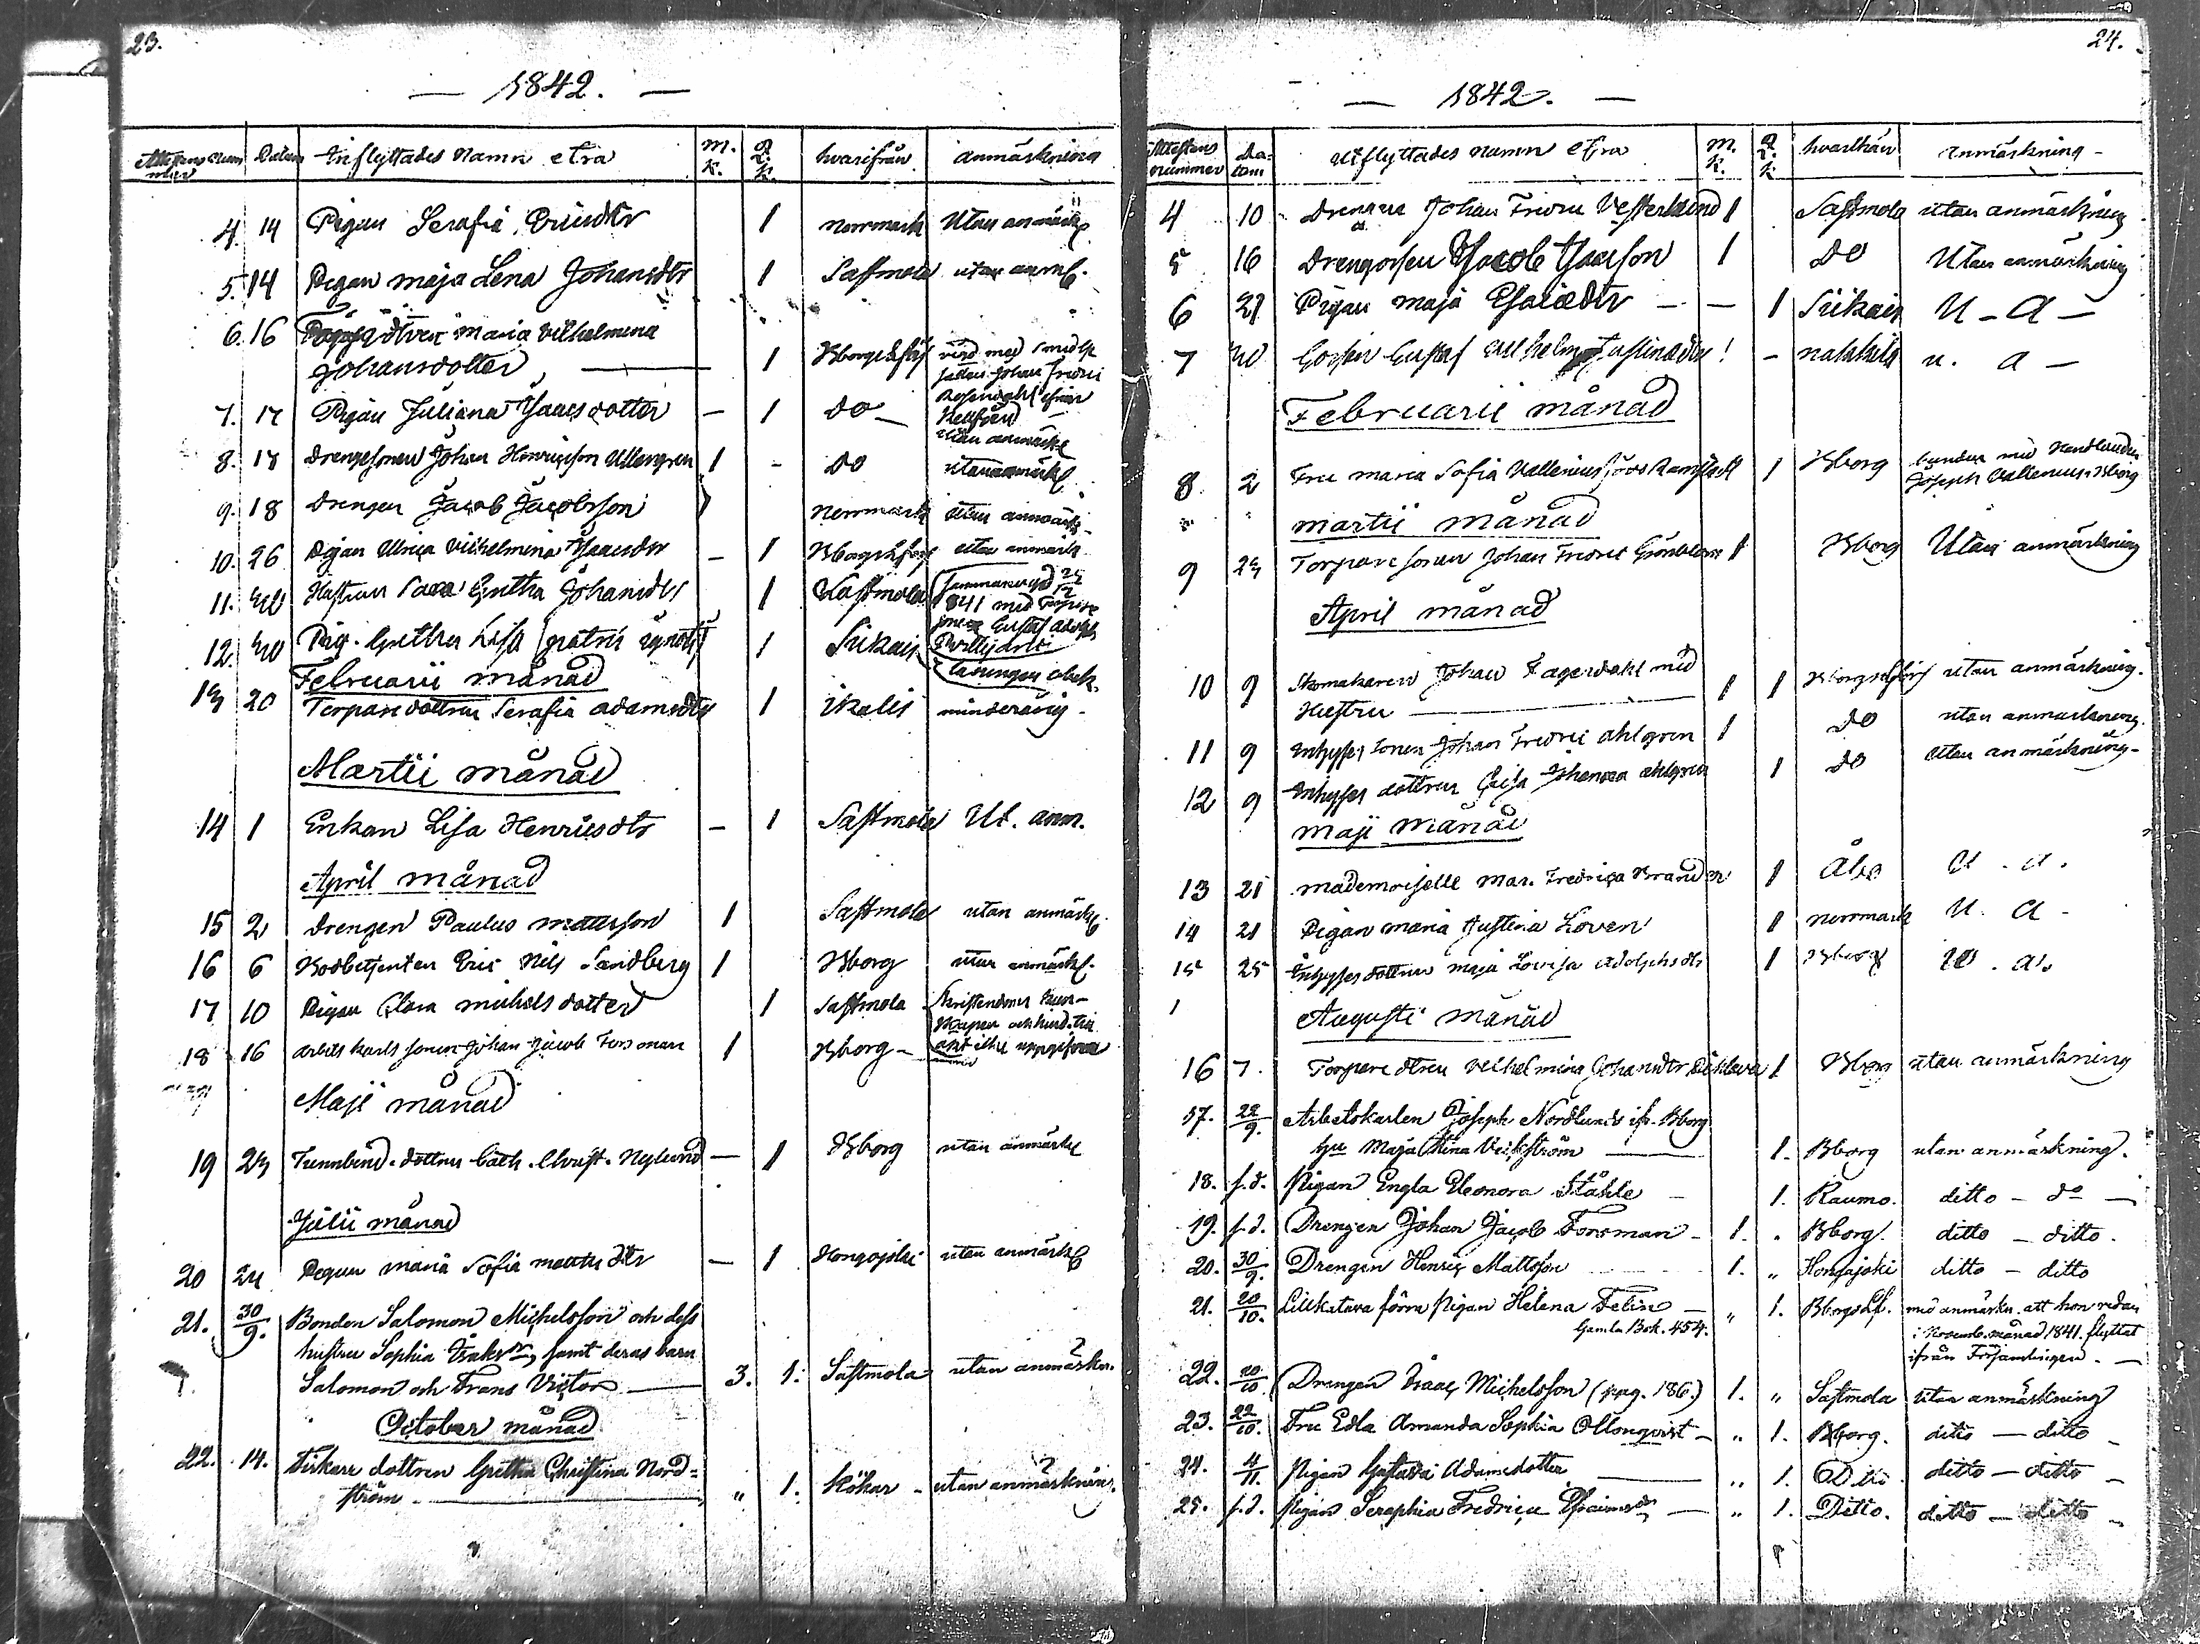 23.
— 1842. —
Attestens Num mer Datum Inflyttades Namn etra M. K. Q. K. hvarifrån anmärkning
4. 14 Pigan Serafia 1 Norrmark Utan anmärk
5. 14 Pigan Maja Lena Johansdtr 1 Sastmola utan anmk.
6. 16 dottren Maria Vilhelmina
Johansdotter — 1 vird med
Johan Fredric
7. 17 Pigan Juliana Isaacsdotter — 1 do —
utan anmärk
8. 18 Drengesonen Johan Henricsson Ullengren 1 - do utan anmärk
9. 18 Drengen Jacob Jacobsson 1 Norrmark utan anmärk
10. 26 Pigan Ulrica Vilhelmina Isaacsdtr — 1 utan anmärk
11. Hustrun Gretha Johansdtr 1 Sastmola
1841 med
Gustaf Adolph
12. Pig. Gretha Lisa (patris ignoti) 1 Siikais
Februarii månad
13 20 Torparedottren Serafia Adamsdtr 1 Ikalis minderårig -
Martii månad
14 1 Enkan Lisa Henricsdtr — 1 Sastmola Ut. anm.
April månad
15 2 Drengen Paulus Mattsson 1 Sastmola utan anmärk
16 6 Eric Nils Sandberg 1 Bborg utan anmärk.
17 10 Pigan Clara Michelsdotter 1 Sastmola Christendoms kun-
skapen
18 16 Arbets karls sonen Johan Jacob Forsman 1 Bborg - icke uppgifven
Maji månad
19 23 Tunnbind. dottren Cath. Christ. Nylund — 1 Bborg utan anmärk
Julii månad
20 24 Pigan Maria Sofia Matts dtr — 1 Hongojoki utan anmärk
21. 30/9. Bonden Salomon Michelsson och dess
hustru Sophia Isaksdr, samt deras barn
Salomon och Frans Victor — 3. 1. Sastmola utan anmärkn.
October månad
22. 14. Fiskare dottren Gretha Christina Nord=
ström. — „ 1. Kökar - utan anmärkn.
24.
— 1842. —
Attestens nummer Da-tum Utflyttades namn etra M. K. Q. K. hvarthän Anmärkning -
4 10 Drengen Johan Fredric Vesterlund 1 Sastmola utan anmärkning
5 16 Drengossen Jacob Isacsson 1 do Utan anmärkning
6 21 Pigan Maja Esaiædtr — — 1 Siikais U - A —
7 Gossen Gustaf Vilhelm 1 - Nakkila u. a —
Februarii månad
8 2 Fru Maria Sofia Vallenius född 1 Bborg med Handlanden
Joseph Vallenius i Bborg
Martii månad
9 23 Torpare sonen Johan Fredric Grönblom 1 Bborg Utan anmärkning
April månad
10 9 Skomakaren Johan Fagerdahl med
Hustru — 1 1 utan anmärkning.
11 9 Inhyses sonen Johan Fredric Ahlgren 1 do utan anmärkning.
12 9 Inhyses dottren Johanna Ahlgren 1 do utan anmärkning -
Maji månad
13 21 Mademoiselle Mar. Fredrica Brander 1 Åbo U. a.
14 21 Pigan Maria Justina Loven 1 Norrmark U. a -
15 25 Inhyses dottren Maja Lovisa Adolphsdtr 1 Bborg U. a.
Augusti månad
16 7. Torpare dtren Vilhelmina Johansdtr 1 Bborg utan anmärkning
17. 22/9. Arbetskarlen Joseph Nordlunds ifr. Bborg
hu Maja Stina Vickström — 1. Bborg utan anmärkning.
18. s.d. Pigan Engla Eleonora Ståhle - 1. Raumo. ditto — do —
19. s.d. Drengen Johan Jacob Forsman - 1. . Bborg. ditto — ditto.
20. 30/9. Drengen Henric Mattsson 1. „ Hongojoki ditto — ditto
21. 20/10. förra Pigan Helena Felin — „ 1. Bborgs Lf. med anmärkn. att hon redan
Gamla Bok. 454. i Novemb. månad 1841. flyttat
ifrån Församlingen. —
22. 20/10. Drengen Isaac Michelsson (pag. 186.) 1. „ Sastmola utan anmärkning
23. 22/10. Fru Edla Amanda Sophia Ollonqvist - „ 1. Bborg. ditto — ditto -
24. 4/11. Pigan Gustava Adamsdotter — „ 1. Ditto. ditto — ditto -
25. s.d. Pigan Seraphia Fredrica Ephraimsdr — „ 1. Ditto. ditto — ditto -